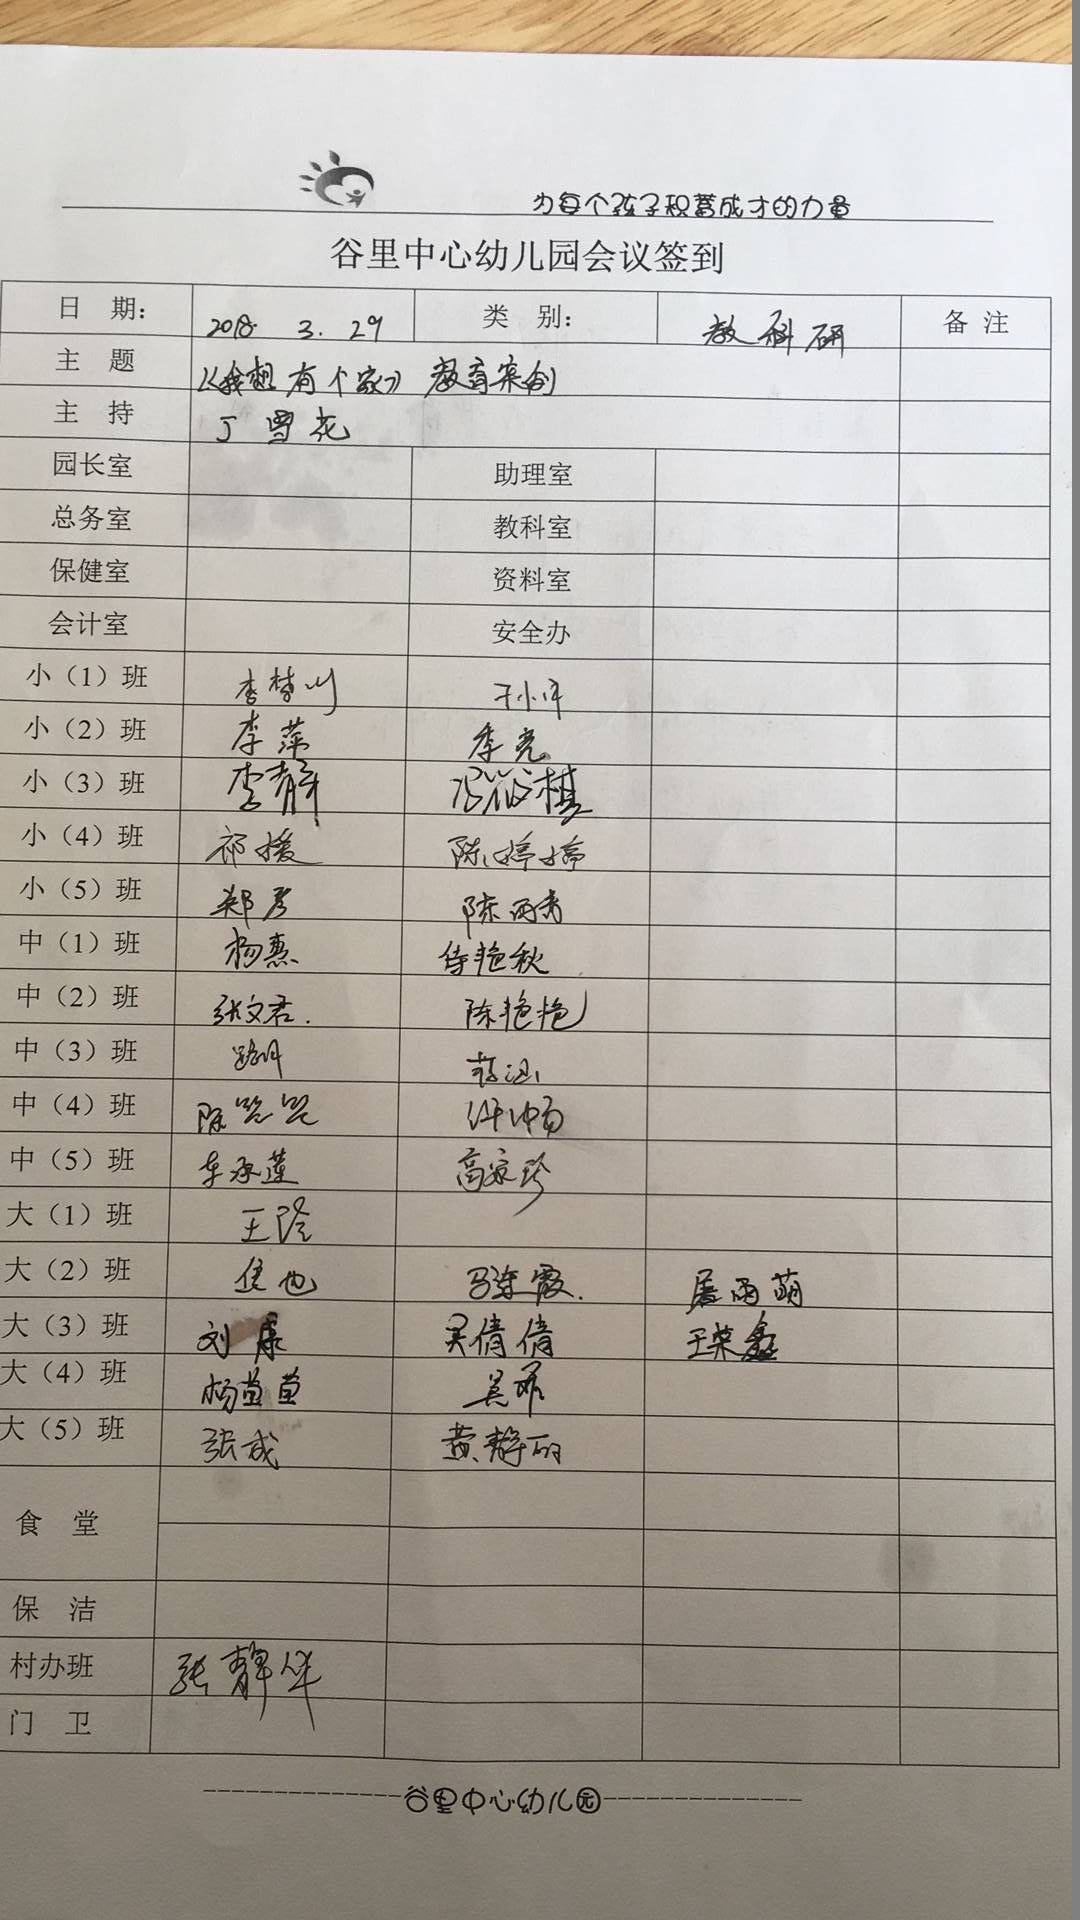 为每个孩子积蓄成才的力量
谷里中心幼儿园会议签到
日 期： 2018. 3. 29 类 别： 教科研 备 注
主 题 《我想有个家》教育案例
主 持 丁雪花
园长室 助理室
总务室 教科室
保健室 资料室
会计室 安全办
小（1）班 李梦川
小（2）班 李萍 季亮
小（3）班 李静
小（4）班 祁媛 陈婷婷
小（5）班 郑彦 陈雨青
中（1）班 杨惠 侍艳秋
中（2）班 张文君. 陈艳艳
中（3）班 蒋涵
中（4）班 陈
中（5）班 车承莲 高家珍
大（1）班 王
大（2）班 马连霞. 屠雨萌
大（3）班 刘康 吴倩倩 王荣鑫
大（4）班 杨苗苗 吴
大（5）班 张成 黄静
食 堂
保 洁
村办班 张静华
门 卫
谷里中心幼儿园